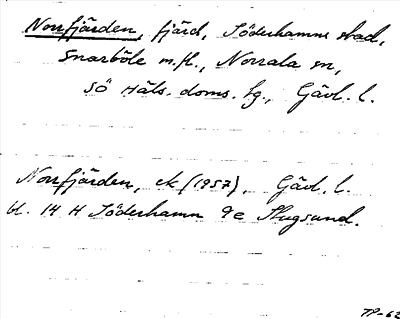 Norrfjärden, fjärd, Söderhamns stad,
Snarböle m.fl., Norrala sn,
SÖ Häls. doms. tg., Gävl. l.
Norrfjärden, ek (1957), Gävl. l.
bl. 14 H Söderhamn 9e Flugsund.
TP-62